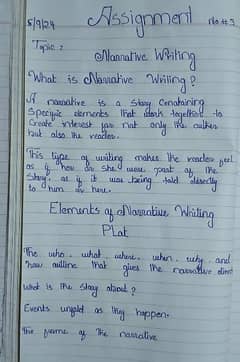 Assignment
5/9/24 No # 3
Topic :
Narrative Writing
What is Narrative Writing ?
A narrative is a story Conataning
Specific elements that work together to
Create interest for not only the auther
but also the reader.
This type of writing makes the reader feel
as if he or she were part of the
Story, as if it was being told directly
to him or here.
Elements of Narrative Writing
PLot
The who, what, where, when, why, and
how outline that gives the narrative direct
What is the story about ?
Events unfold as they happen.
The frame of the narrative